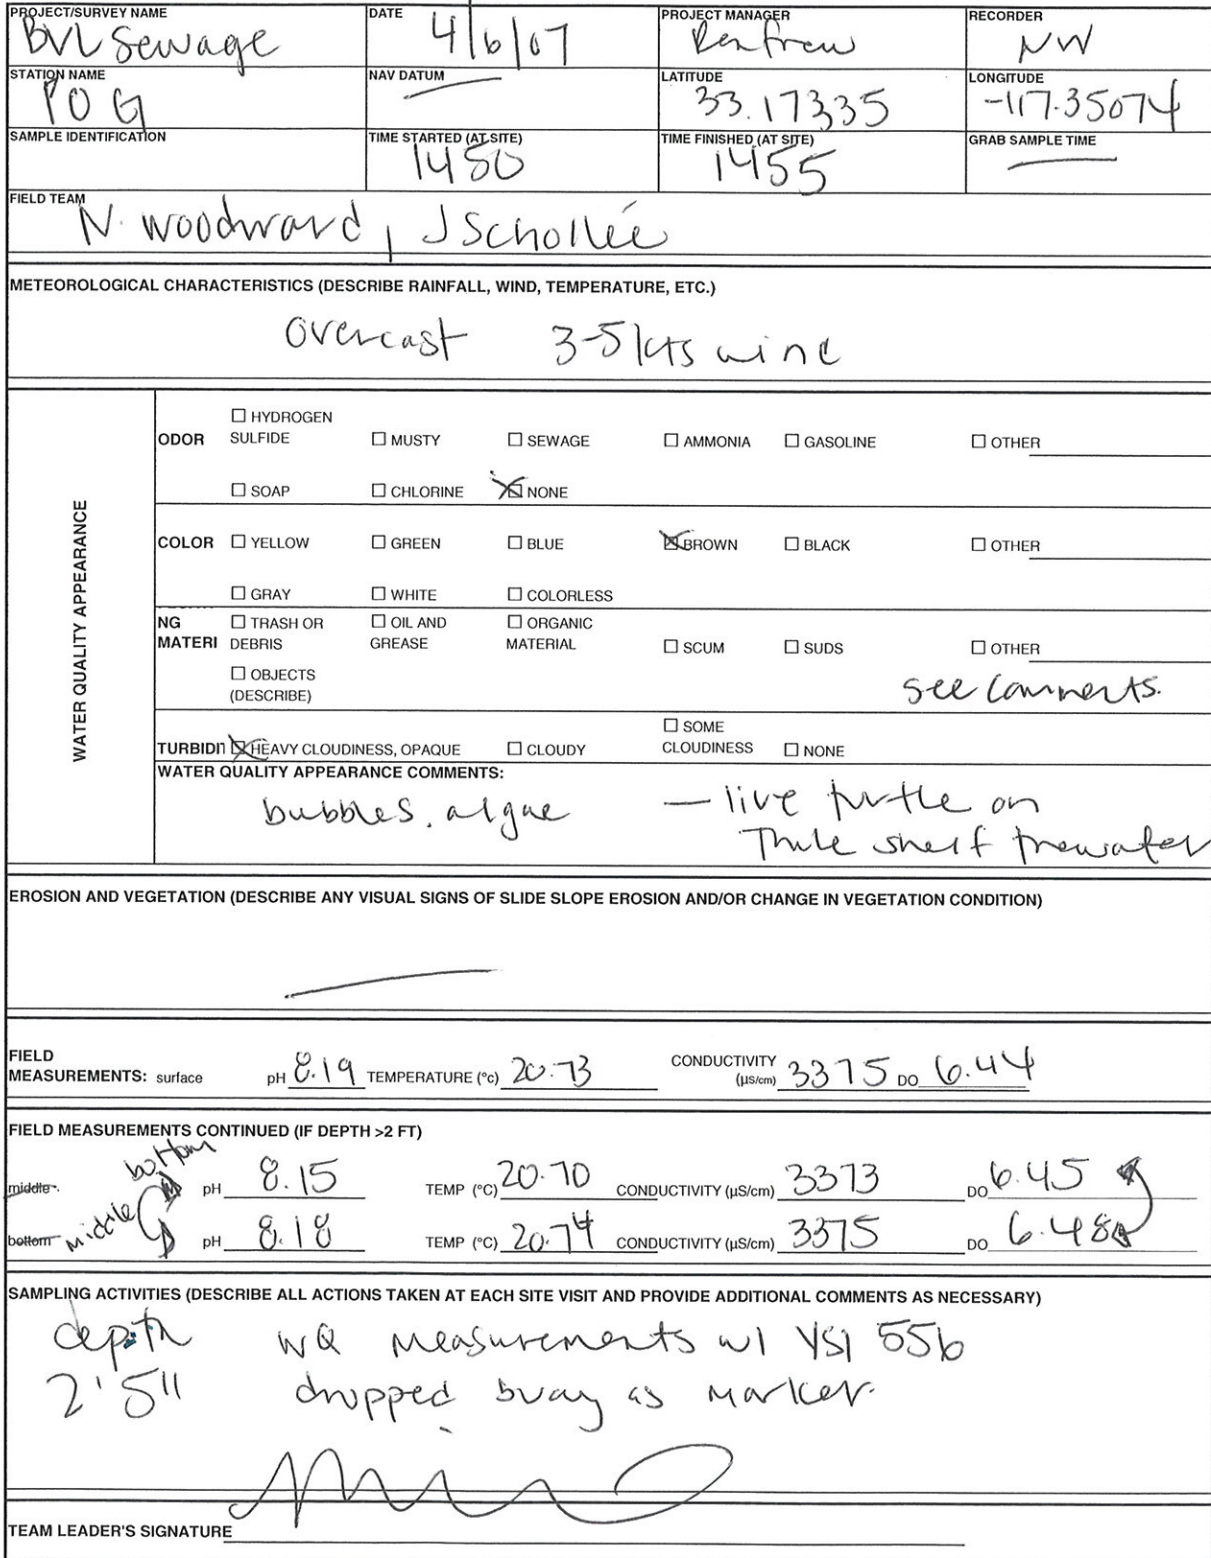 PROJECT/SURVEY NAME DATE PROJECT MANAGER RECORDER
BVL Sewage 4/6/07 Renfrew NW
STATION NAME NAV DATUM LATITUDE LONGITUDE
POG — 33.17335 -117.35074
SAMPLE IDENTIFICATION TIME STARTED (AT SITE) TIME FINISHED (AT SITE) GRAB SAMPLE TIME
1450 1455 —
FIELD TEAM
N. Woodward, J Schollée
METEOROLOGICAL CHARACTERISTICS (DESCRIBE RAINFALL, WIND, TEMPERATURE, ETC.)
overcast 3-5 kts wind
WATER QUALITY APPEARANCE
☐ HYDROGEN
ODOR SULFIDE ☐ MUSTY ☐ SEWAGE ☐ AMMONIA ☐ GASOLINE ☐ OTHER
☐ SOAP ☐ CHLORINE ☒ NONE
COLOR ☐ YELLOW ☐ GREEN ☐ BLUE ☒ BROWN ☐ BLACK ☐ OTHER
☐ GRAY ☐ WHITE ☐ COLORLESS
NG ☐ TRASH OR ☐ OIL AND ☐ ORGANIC
MATERI DEBRIS GREASE MATERIAL ☐ SCUM ☐ SUDS ☐ OTHER
☐ OBJECTS
(DESCRIBE) see comments.
☐ SOME
TURBIDIT ☒ HEAVY CLOUDINESS, OPAQUE ☐ CLOUDY CLOUDINESS ☐ NONE
WATER QUALITY APPEARANCE COMMENTS:
bubbles, algae — live turtle on
Thule shelf
EROSION AND VEGETATION (DESCRIBE ANY VISUAL SIGNS OF SLIDE SLOPE EROSION AND/OR CHANGE IN VEGETATION CONDITION)
—
FIELD
MEASUREMENTS: surface pH 8.19 TEMPERATURE (°c) 20.73 CONDUCTIVITY (µS/cm) 3375 DO 6.44
FIELD MEASUREMENTS CONTINUED (IF DEPTH >2 FT)
middle bottom pH 8.15 TEMP (°C) 20.70 CONDUCTIVITY (µS/cm) 3373 DO 6.45
bottom middle pH 8.18 TEMP (°C) 20.74 CONDUCTIVITY (µS/cm) 3375 DO 6.48
SAMPLING ACTIVITIES (DESCRIBE ALL ACTIONS TAKEN AT EACH SITE VISIT AND PROVIDE ADDITIONAL COMMENTS AS NECESSARY)
depth WQ measurements w/ YSI 556
2'5" dropped buoy as marker.
TEAM LEADER'S SIGNATURE